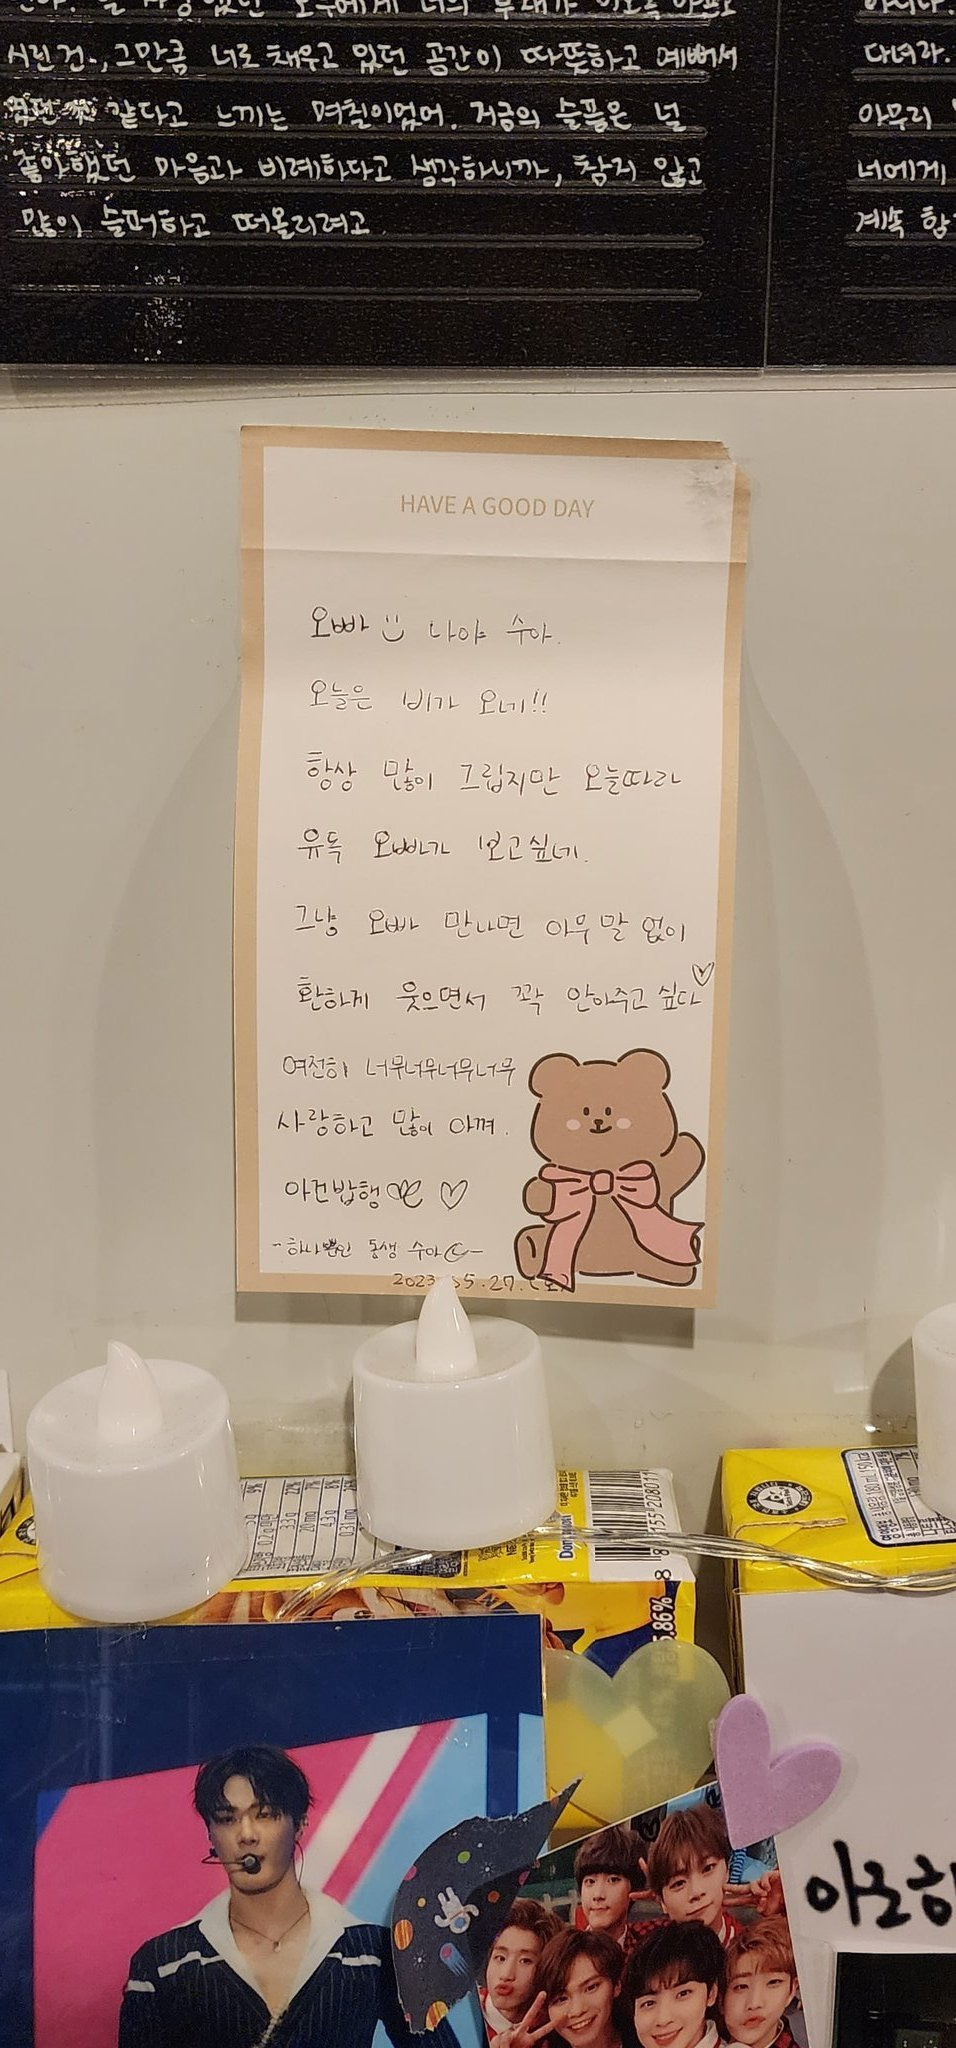 시린 건.., 그만큼 너로 채우고 있던 공간이 따뜻하고 예뻐서
같다고 느끼는 며칠이었어. 지금의 슬픔은 널
좋아했던 마음과 비례하다고 생각하니까, 참지 않고
많이 슬퍼하고 떠올리려고
아니다.
다녀라.
아무리
너에게
계속
HAVE A GOOD DAY
오빠 나야 수아.
오늘은 비가 오네!!
항상 많이 그립지만 오늘따라
유독 오빠가 보고싶네.
그냥 오빠 만나면 아무 말 없이
환하게 웃으면서 꽉 안아주고 싶다♡
여전히 너무너무너무너무
사랑하고 많이 아껴.
아건밥행 ♡
-하나뿐인 동생 수아-
2023 05.27.(토)
8 801155
5.86%
180 mL
아로하